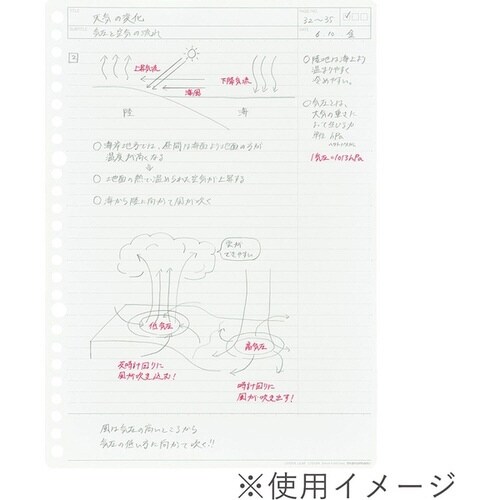 天気の変化
32〜35
気圧と空気の流れ
6 10 金
2
上昇気流
下降気流
海風
陸
海
○陸地は海上より
温まりやすく
冷めやすい。
○気圧とは、
大気の重さに
よって生じる力
単位 hPa
ヘクトパスカル
1気圧=1013hPa
○海岸地方では、昼間は海面より地面の方が
温度が高くなる
○地面の熱で温められた空気が上昇する
○海から陸に向かって風が吹く
雲が
できやすい
低気圧
高気圧
反時計回りに
風が吹き込む!
時計回りに
風が吹き出す!
風は気圧の高いところから
気圧の低い方に向かって吹く!!
※使用イメージ